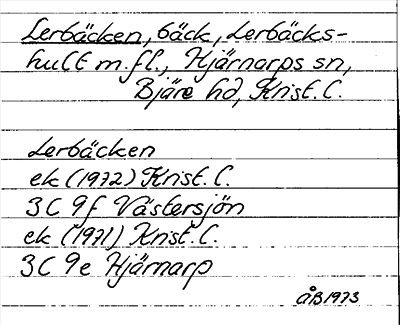 Lerbäcken, bäck, Lerbäcks-
hult m.fl., Hjärnarps sn,
Bjäre hd, Krist. L.
Lerbäcken
ek (1972) Krist. L.
3C 9f Västersjön
ek (1971) Krist. L.
3C 9e Hjärnarp
ÅB 1973